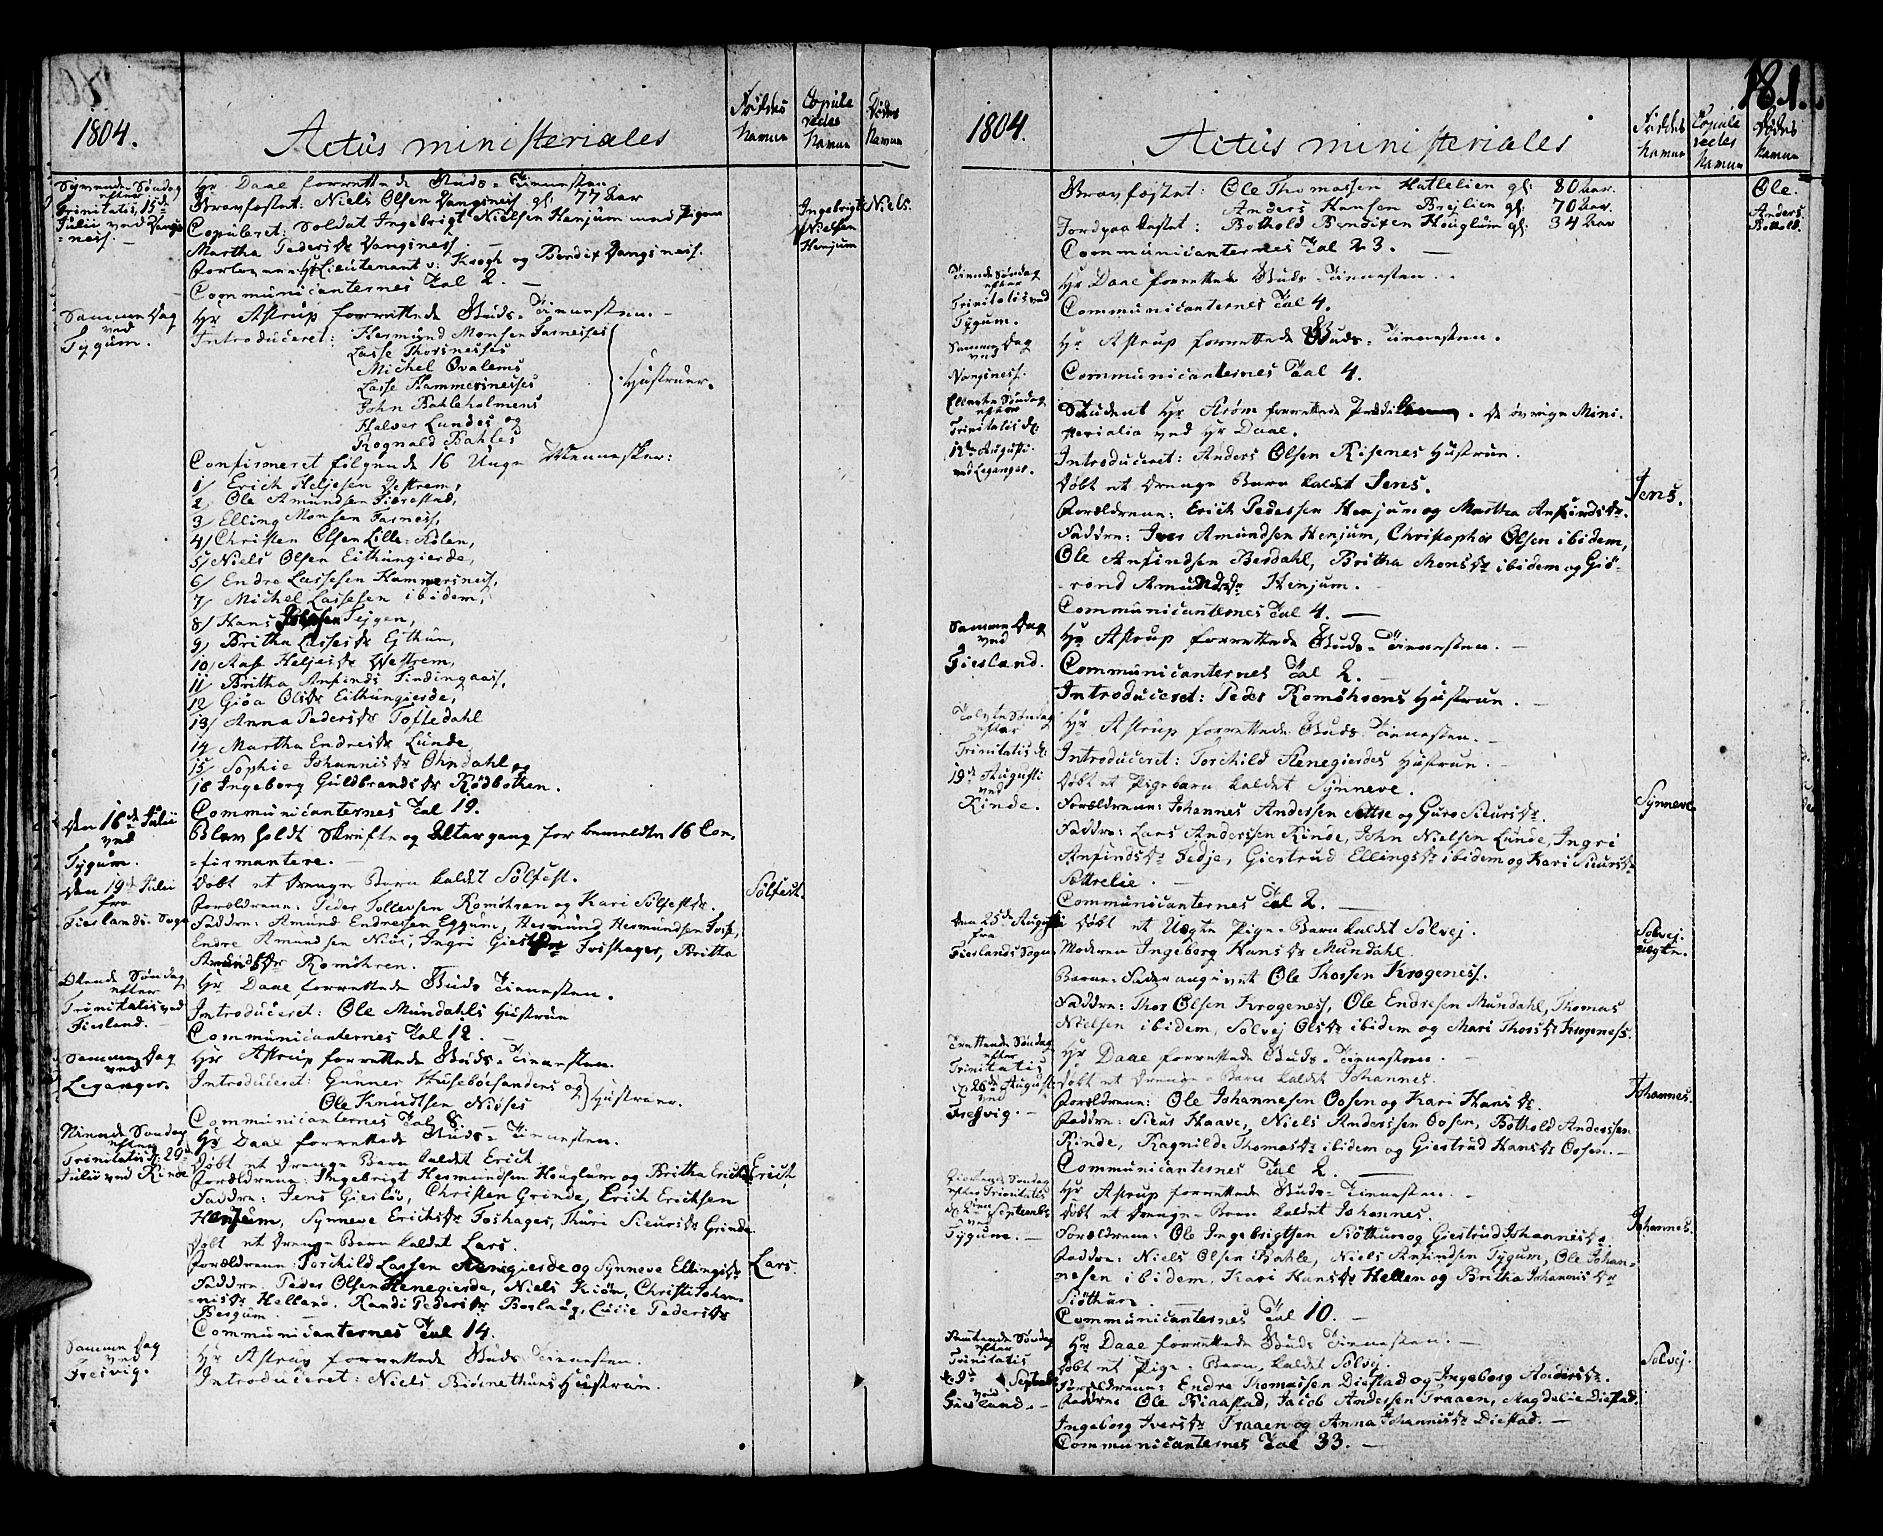 1804.
Actus ministeriales
Fødtes Namne
Copule redes Namne
Dødes Namne
Syvende Søndag
efter
Trinitatis, 15de
Julii ved Vangs-
=ness. —
Hr Daae forrettede Guds-Tienesten.
Gravfæstet: Niels Olsen Vangsness gl: 77 Aar
Niels.
Copuleret: Soldat Ingebrigt Nielsen Henjum med Pigen
Ingebrigt
Nielsen
Henjum
Martha Pedersdr Vangsness. —
Forlovere: Hr Lieutenant v: Krogh og Bendix Vangsness.
Communicanternes Tal 2. —
Samme Dag
ved
Tygum.
Hr Astrup forrettede Guds-Tienesten. —
Introduceret: Hermund Monsen Farnesses
Lasse Thorsnesses
Michel Qvalems
Lasse Hammersnesses
John Bahleholmens
Halvor Lundes og
Rognald Bahles
Hustruer.
Confirmeret følgende 16 Unge Mennesker:
1/ Erich Heljesen Vestrem,
2/ Ole Amundsen Fierestad,
3/ Elling Monsen Farness,
4/ Christen Olsen Lille-Kolen,
5/ Niels Olsen Eithungierde,
6/ Endre Lassesen Hammersness,
7/ Michel Lassesen ibidem,
8/ Hans Fejgen,
9/ Britha Lassesdr Ejthun,
10/ Aase Heljesdr Westrem,
11/ Britha Anfinds Findingaass,
12/ Giøa Olsdr Eithungierde,
13/ Anna Pedersdr Toftedahl
14/ Martha Endresdr Lunde
15/ Sophie Johannisdr Ohndahl og
16 Ingeborg Guldbrandsdr Rødbothen.
Communicanternes Tal 19.
Den 16de Julii
ved
Tygum.
Blev holdt Skrifte og Altergang for bemeldte 16 Con-
=firmantere. —
Den 19de Julii
fra
Fieslands-Sogn
Døbt et Drenge Barn kaldet Solfest.
Solfest.
Forældrene: Peder Tollevsen Romøhren og Kari Solfestdr.
Faddre: Amund Endresen Eggum, Hermund Hermundsen Foss,
Endre Amundsen Nius, Ingri Foshager, Britha
Romøhren.
Ottende Søndag
efter
Trinitatis ved
Fiesland. —
Hr Daae forrettede Guds Tienesten.
Introduceret: Ole Mundahls Hustrue
Communicanternes Tal 12. —
Samme Dag
ved
Leganger.
Hr Astrup forrettede Guds-Tienesten.
Introduceret: Gunner Husebøesanders og
Ole Knudtsen Niøses
Hustruer.
Communicanternes Tal 8.
Niende Søndag
efter
Trinitatis d: 29de
Julii ved Rinde
Hr Daae forrettede Guds-Tienesten.
Døbt et Drenge Barn kaldet Erich
Forældrene: Ingebrigt Hermundsen Houglum og Britha Erichsdr
Erich,
Faddre: Jens Giesløe, Christen Grinde, Erich Erichsen
Henjum, Synneve Erichsdr Foshager, Thuri Siursdr Grinde
Døbt et Drenge Barn kaldet Lars.
Forældrene: Torchild Lassen Renegierde og Synneve Ellingsdr
Lars.
Faddre: Peder Olsen Renegierde, Niels Kiøm, Christi Johan-
=nisdr Helland. Randi Pedersdr Boslaug, Lucie Pedersdr
Bergum —
Communicanternes Tal 14.
Samme Dag
ved
Freivig. —
Hr Astrup forrettede Guds Tienesten.
Introduceret: Niels Biørnethuns Hustrue.
181.
1804.
Actus ministeriales
Fødtes Namne
Copule redes Namne
Dødes Namne
Gravfæstet: Ole Thomassen Hatlelien gl: 80 Aar
Ole.
Anders Hansen Brejlien gl: 70 Aar
Anders
Jordpaakastet: Bothold Bendixen Houglum gl: 34 Aar
Bothold.
Communicanternes Tal 23. —
Tiende Søndag
efter
Trinitatis ved
Tygum.
Hr Daae forrettede Guds-Tienesten.
Communicanternes Tal 4.
Samme Dag
ved
Vangsness.
Hr Astrup forrettede Guds-Tienesten.
Communicanternes Tal 4.
Ellevte Søndag
efter
Trinitatis d:
12te Augusti
ved Leganger.
Student Hr Strøm forrettede . De øvrige Mini-
sterialia ved Hr Daae.
Introduceret: Anders Olsen Risenes Hustrue.
Døbt et Drenge Barn kaldet Jens.
Jens.
Forældrene: Erich Pedersen Henjum og Martha Anfindsdr.
Faddre: Iver Amundsen Henjum, Christopher Olsen ibidem,
Ole Anfindsen Berdahl, Britha Monsdr ibidem og Giø-
rond Amundsdr Henjum. —
Communicanternes Tal 4. —
Samme Dag
ved
Fiesland.
Hr Astrup forrettede Guds-Tienesten. —
Communicanternes Tal 2. —
Introduceret: Peder Romøhrens Hustrue. —
Tolvte Søndag
efter
Trinitatis d:
19de Augusti
ved
Rinde.
Hr Astrup forrettede Guds-Tienesten. —
Introduceret: Torchild Renegierdes Hustrue. —
Døbt et Pigebarn kaldet Synneve.
Synneve
Forældrene: Johannes Andersen Sættre og Guro Siursdr.
Faddre: Lars Anderssen Rinde, John Nielsen Lunde, Ingri
Anfindsdr Fedje, Giertrud Ellingsdr ibidem og Kari Siursdr
Sættrelie. —
Communicanternes Tal 2. —
Den 25de Augusti
fra
Fieslands Sogn
Døbt et Uægte Pige-Barn kaldet Solvej.
Solvej.
uægte.
Moderen Ingeborg Hansdr Mundahl.
Barne-Fader angivet Ole Thorsen Krogeness.
Faddre: Thor Olsen Krogeness, Ole Endresen Mundahl, Thomas
Nielsen ibidem, Solvej Olsdr ibidem og Mari Thorsdr Krogeness.
Trettende Søndag
efter
Trinitatis
d: 26de Augusti
ved
Frejvig. —
Hr Daae forrettede Guds-Tienesten. —
Døbt et Drenge-Barn kaldet Johannes.
Johannes.
Forældrene: Ole Johannesen Oosen og Kari Hansdr.
Faddre: Siur Haave, Niels Anderssen Oosen, Bothold Anderssen
Rinde, Ragnilde Thomasdr ibidem og Giertrud Hansdr Oosen. —
Communicanternes Tal 2. —
Fiortende Søndag
efter Trinitatis
d: 2den Septembr
ved
Tygum. —
Hr Astrup forrettede Guds-Tienesten. —
Døbt et Drenge-Barn kaldet Johannes.
Johannes.
Forældrene: Ole Ingebrigtsen Siøthun og Giertrud Johannisdr.
Faddre: Niels Olsen Bahle, Niels Anfindsen Tygum, Ole Johan-
nesen ibidem, Kari Hansdr Hellen og Britha Johannisdr
Siøthun. —
Communicanternes Tal 10. —
Femtende Søndag
efter
Trinitatis
d: 9de Septembr
ved
Fiesland. —
Hr Daae forrettede Guds-Tienesten. —
Døbt et Pige-Barn kaldet Solvej.
Solvej.
Forældrene: Endre Thomassen Diestad og Ingeborg Andersdr.
Faddre: Ole Niaastad, Jacob Andersen Traaen, Magdelie Diestad,
Ingeborg Iversdr Traaen og Anna Johannisdr Diestad. —
Communicanternes Tal 33. —